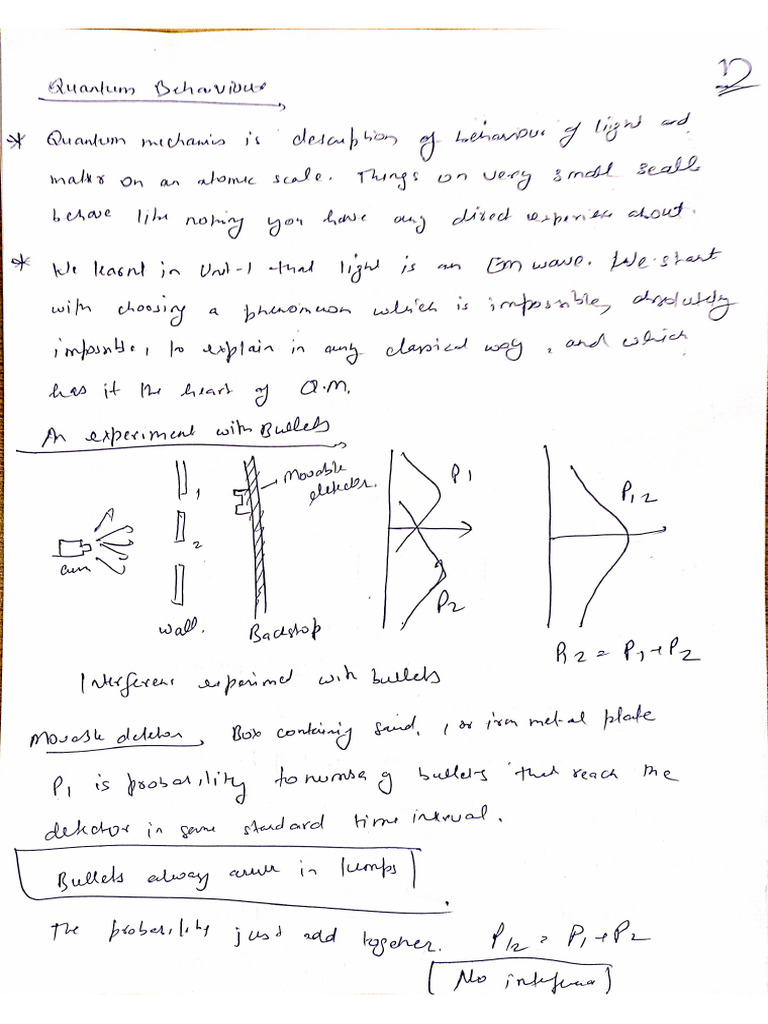 12
Quantum Behaviour
* Quantum mechanics is description of behaviour of light and
matter on an atomic scale. Things on very small scale
behave like nothing you have any direct experience about.
* We learnt in Unit-1 that light is an EM wave. We start
with choosing a phenomenon which is impossible, absolutely
impossible, to explain in any classical way, and which
has it the heart of Q.M.
An experiment with Bullets
Movable
detector.
1
2
Gun
wall.
Backstop
P1
P2
P12
P12 = P1+P2
Interference experiment with bullets
Movable detector, Box containing sand, or iron metal plate
P1 is probability to number of bullets that reach the
detector in some standard time interval.
Bullets always arrive in lumps
The probability just add together. P12 = P1+P2
[No interference]